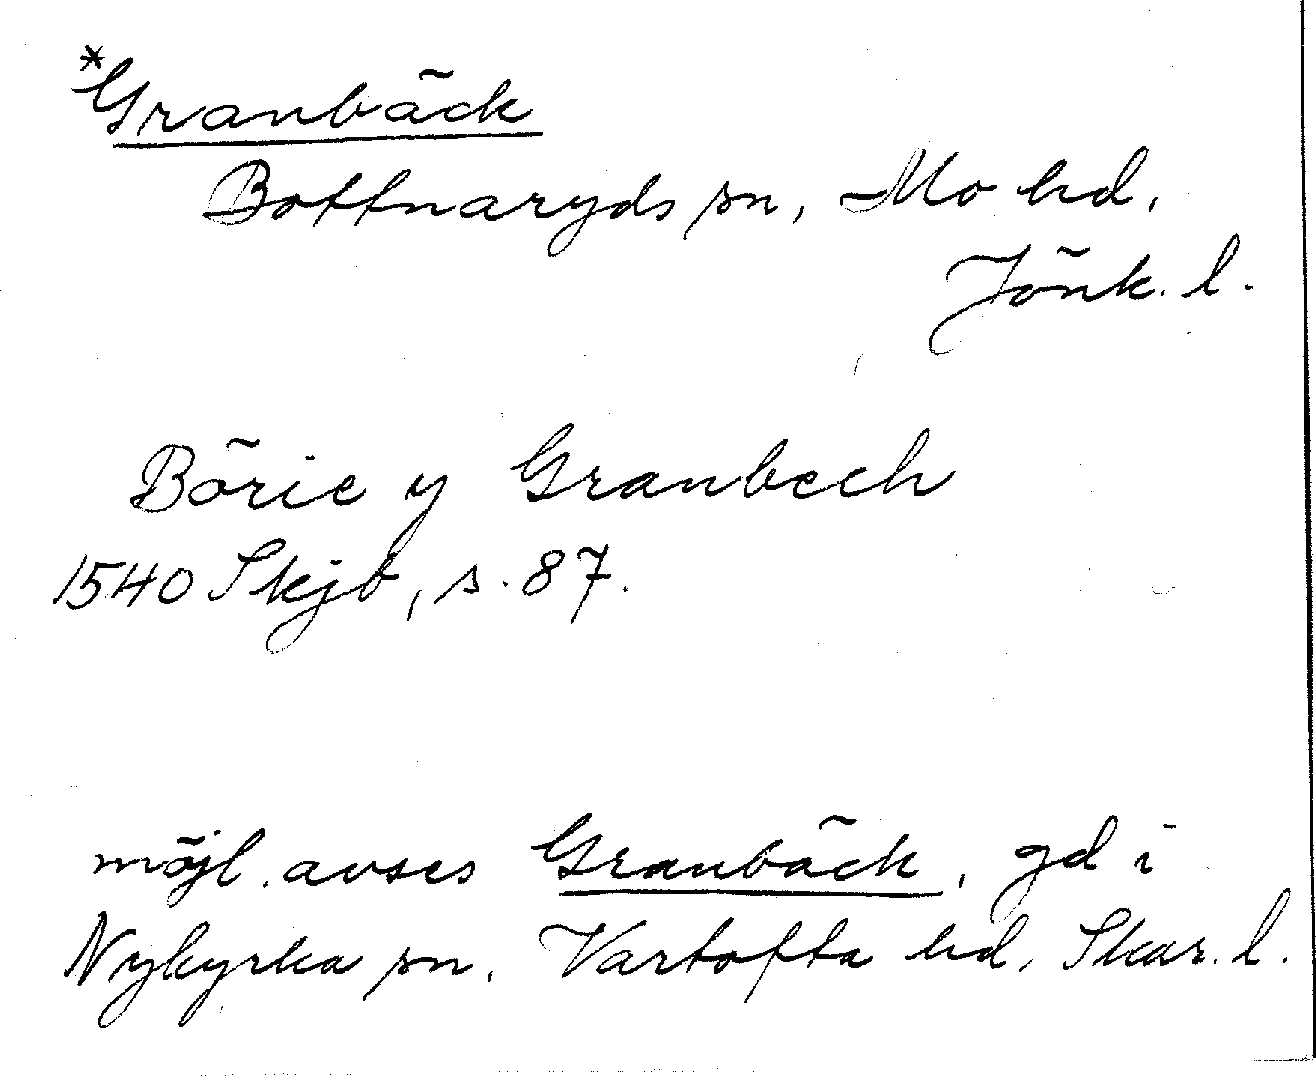 *Granbäck
Bottnaryds sn, Mo hd,
Jönk. l.
Börie y Granbech
1540 Skjb, s. 87.
möjl. avses Granbäck, gd i
Nykyrka sn, Vartofta hd, Skar. l.